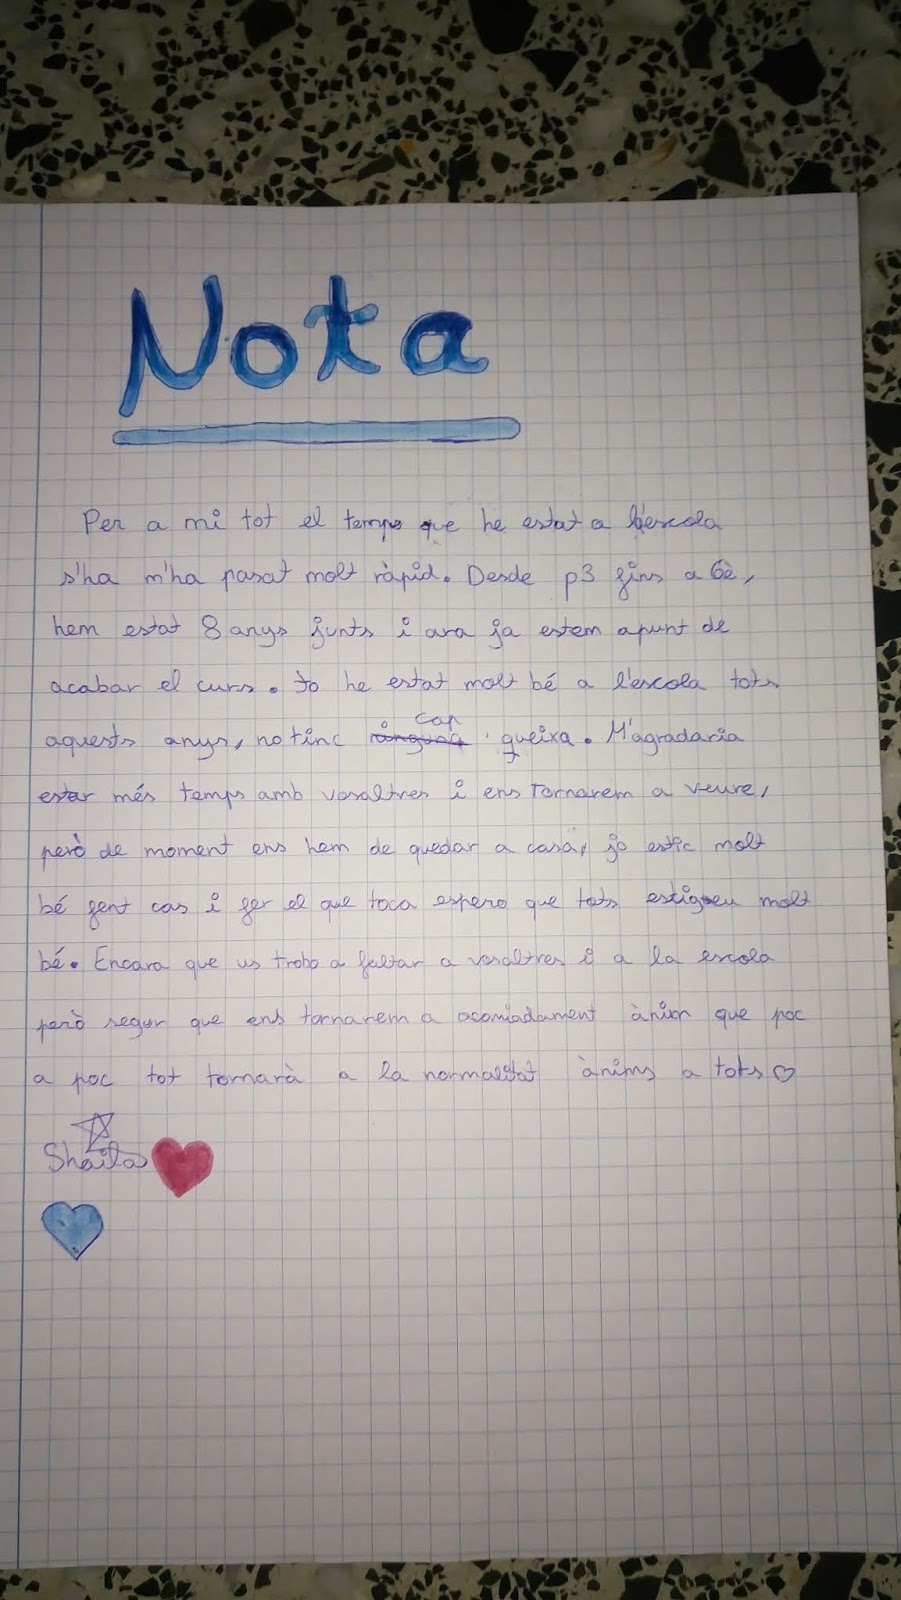 Nota
Per a mi tot el temps que he estat a l'escola
s'ha m'ha pasat molt ràpid. Desde p3 fins a 6è,
hem estat 8 anys junts i ara ja estem apunt de
acabar el curs. Jo he estat molt bé a l'escola tots
aquests anys, no tinc ninguna cap queixa. M'agradaria
estar més temps amb vosaltres i ens tornarem a veure,
però de moment ens hem de quedar a casa, jo estic molt
bé fent cas i fer el que toca espero que tots estigueu molt
bé. Encara que us trobo a faltar a vosaltres i a la escola
però segur que ens tornarem a acomiadament ànim que poc
a poc tot tornarà a la normalitat ànims a tots ♡
Shaila